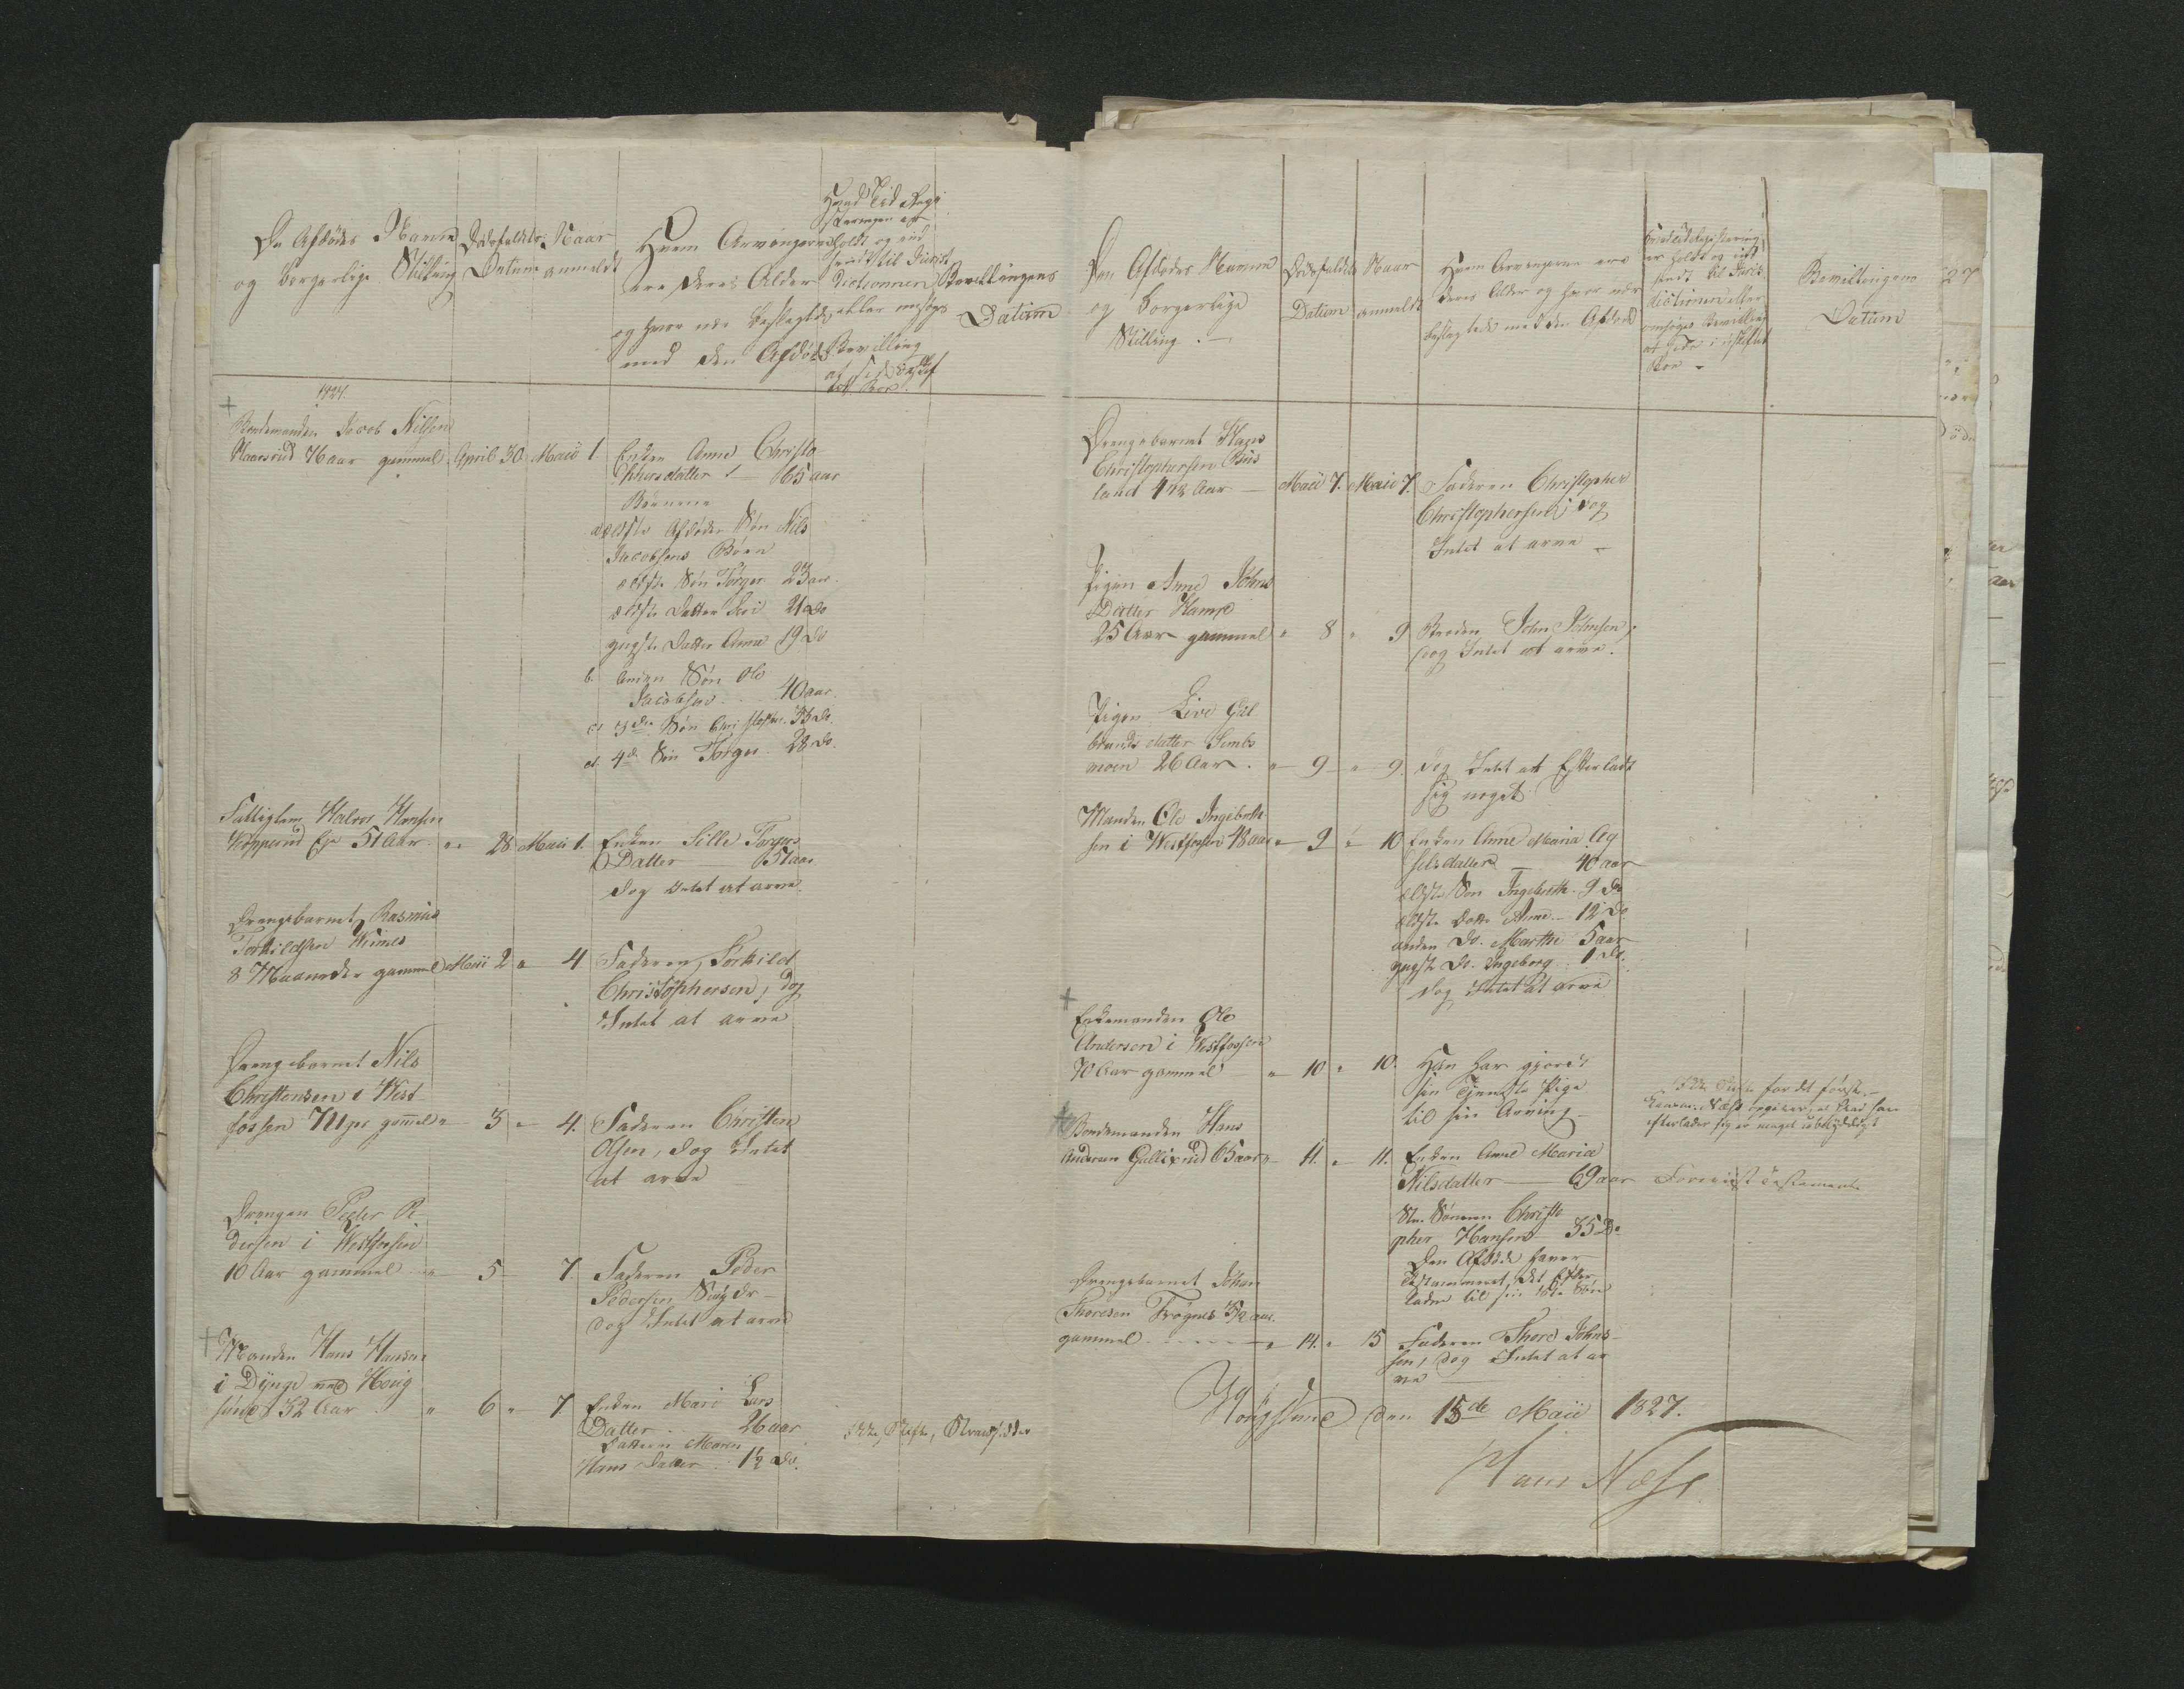 De Afdødes Navne
og borgerlige Stilling
Dødsfaldets
Datum
Naar
anmeldt
Hvem Arvingerne
ere deres Alder
og hvor nær beslægtede
med den Afdøde
Hvad Tid Regi
streringen er
holdt og ind
sendt til Juris
dictionen
eller ansøges
Bevilling
at sidde i uskif
tet Boe.
Bevillingens
Datum
1827.
+
Bondemanden Jacob Nilsen
76 aar gammel. April 30 Maii 1
Enken Anne Christo
phersdatter 65 aar
Børnene
a ældste Afdøde Søn Nils
Jacobsens Børn
ældste Søn Torger 23 aar
ældste Datter 21 Do
yngste Datter Anne 19 Do
b. anden Søn Ole
Jacobsen 40 aar.
c. 3die Søn Christopher 33 Do.
d. 4de Søn Torger 28 Do.
Fattiglem Halvor Hansen
Eje 51 Aar " 28 Maii 1.
Enken Sille Torgers
Datter 51 aar
dog Intet at arve
Drengebarnet Rasmus
Torkildsen
8 Maaneder gammel Maii 2 " 4
Faderen, Torkild
Christophersen, dog
Intet at arve
Drengebarnet Nils
Christensen i West-
fossen gammel " 3 " 4.
Faderen Christen
Olsen, dog Intet
at arve
Drengen Peder Pe
dersen i Westfossen
10 Aar gammel " 5 7
Faderen Peder
Pedersen
dog Intet at arve
+
Manden Hans Hansen
i Dynge ved Houg
sund 32 Aar " 6 " 7
Enken Mari Lars
Datter 26 aar
Datteren Maren
Hans Datter 1½ Do.
Den Afdødes Navne
og borgerlige
Stilling.
Dødsfaldets
Datum
Naar
anmeldt
Hvem Arvingerne ere
deres Alder og hvor nær
beslægtede med den Afdøde
Hvad Tid Registrering
er holdt og ind
sendt til Juris
dictionen eller
ansøges Bevilling
at sidde i uskiftet
Boe
Bevillingens
Datum
Drengebarnet Hans
Christophersen
land 4 1/2 Aar Maii 7. Maii 7.
Faderen Christopher
Christophersen; dog
Intet at arve
Pigen Anne Johns
Datter
25 Aar gammel " 8 " 9
Broderen John Johnsen;
dog Intet at arve.
Pigen Live Gul
brandsdatter Sembs
moen 26 Aar. " 9 " 9.
dog Intet at Efterladt
sig noget
Manden Ole Ingebreth
sen i Westfossen 48 aar " 9 " 10
Enken Anne Maria
40 aar
ældste Søn Ingebreth 9 Do
ældste Datter Anne 12 Do.
anden Do. Marthe 5 aar
yngste Do. Ingeborg 1 Do.
dog Intet at arve
+
Enkemanden Ole
Andersen i Westfossen
70 Aar gammel " 10 " 10.
Han har gjort
sin Tjeneste Pige
til sin Arving
for det første
efterlader sig er meget ubetydeligt
+
Bondemanden Hans
Andersen Gullixrud 65 aar " 11. " 11.
Enken Anne Maria
Nilsdatter 69 aar
Foreviist Testamente
Sønnen Christo
pher Hansen 35 Do
Den Afdøde haver
testamenteret det Efter
ladte til sin Søn
Drengebarnet Johan
Thoresen Frøgnes 3½ aar
gammel " 14. " 15
Faderen Thore Johns
sen, dog Intet at ar
ve
Hougsund den 15de Maii 1827.
Hans Næss